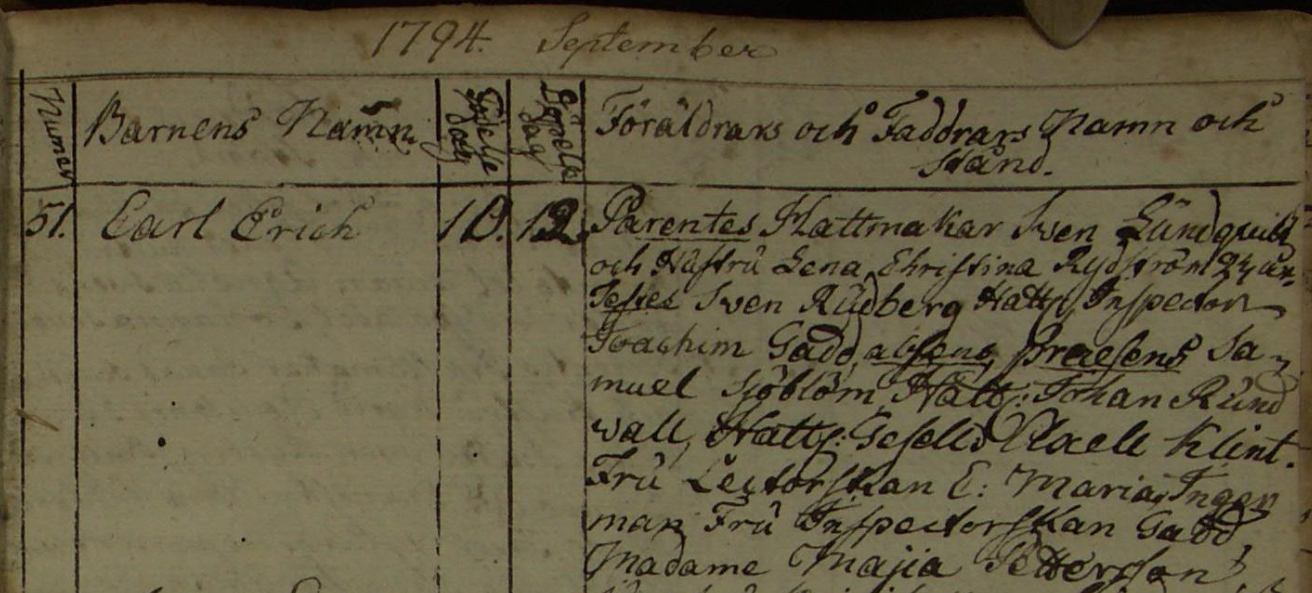 1794. September
Numer
Barnens Namn
Födelse dag
Döpelse dag
Föräldrars och Faddrars Namn och
stånd.
51. Carl Erich 10. 12. Parentes Hattmakar Sven Lundquist
och Hustru Lena Christina Rydström 24 år.
Testes Sven Rudberg Hattm. Inspector
Joachim Gadd, absens, præsens Sa-
muel Sjöblom Hattm: Johan Rund
wall, Hattm: Gesell Axell Klint.
Fru Lectorskan E: Maria Inger
man Fru Inspectorskan Gadd,
Madame Majia Petterson